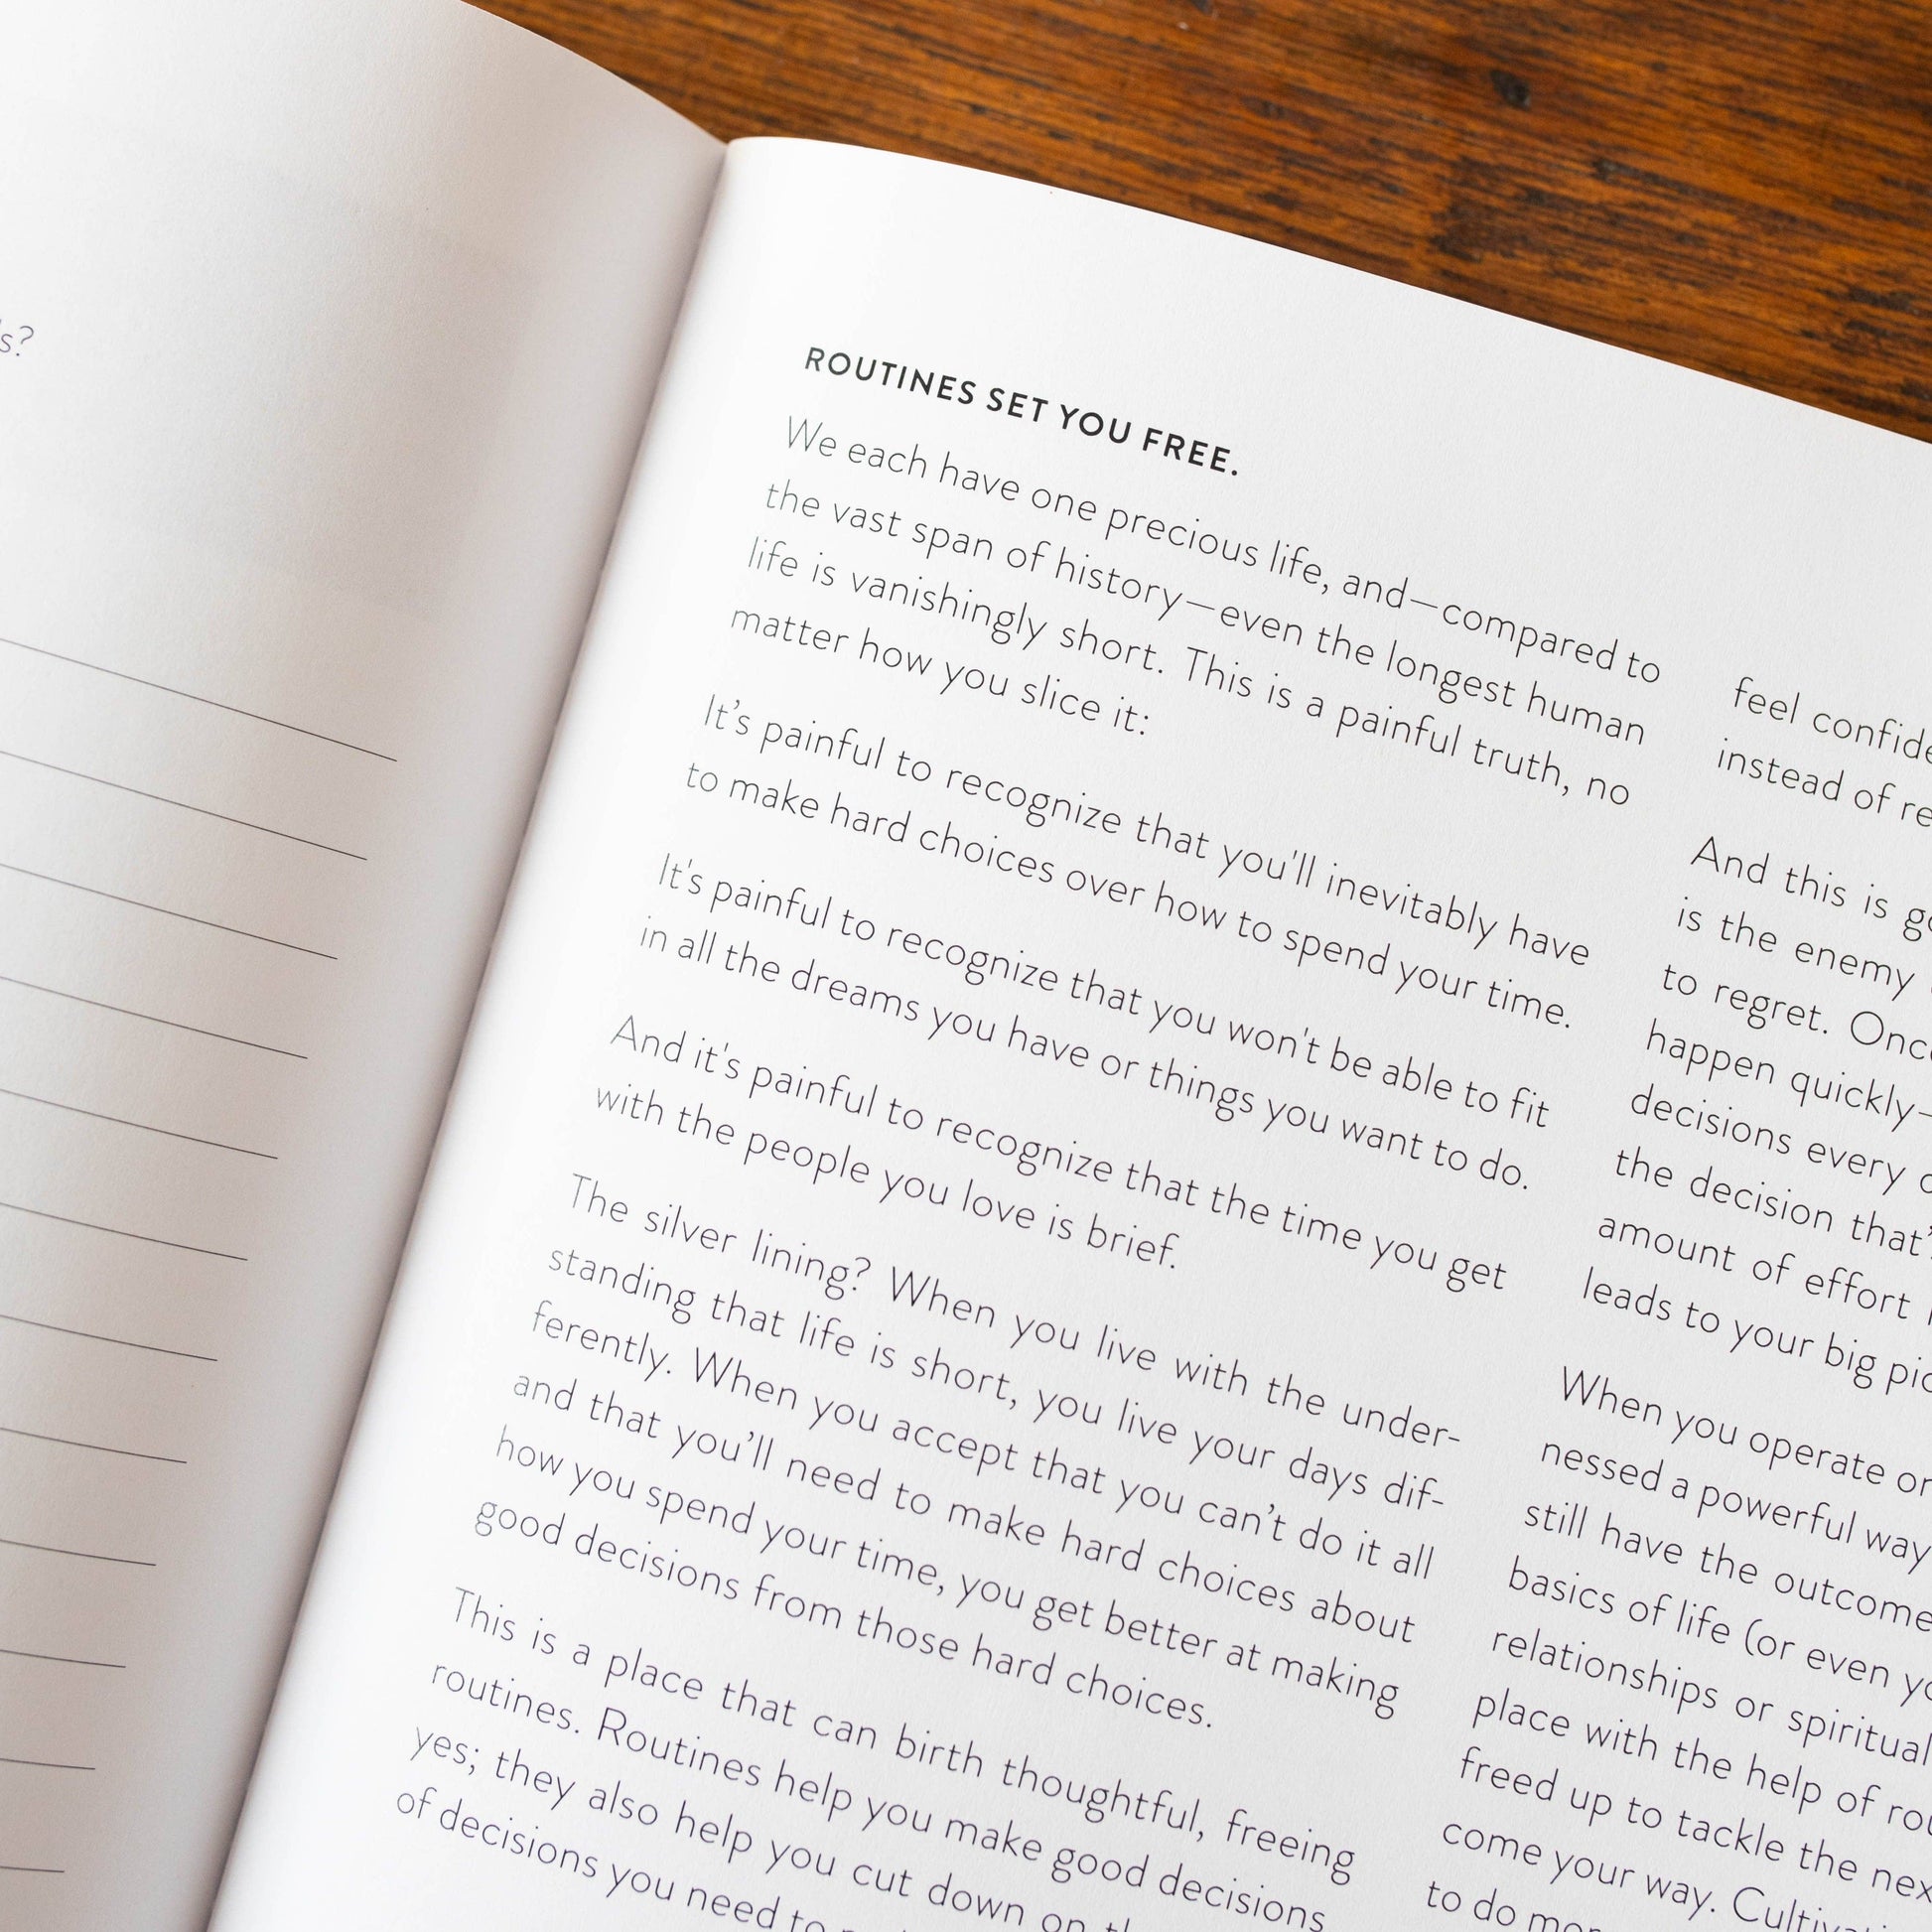 s?
ROUTINES SET YOU FREE.
We each have one precious life, and—compared to
the vast span of history—even the longest human
life is vanishingly short. This is a painful truth, no
matter how you slice it:
It’s painful to recognize that you'll inevitably have
to make hard choices over how to spend your time.
It's painful to recognize that you won't be able to fit
in all the dreams you have or things you want to do.
And it's painful to recognize that the time you get
with the people you love is brief.
The silver lining? When you live with the under-
standing that life is short, you live your days dif-
ferently. When you accept that you can’t do it all
and that you’ll need to make hard choices about
how you spend your time, you get better at making
good decisions from those hard choices.
This is a place that can birth thoughtful, freeing
routines. Routines help you make good decisions
yes; they also help you cut down on
of decisions you need to
feel
instead of
And this is
is the enemy
to regret.
happen quickly—
decisions every
the decision that’
amount of effort
leads to your big
When you operate
nessed a powerful way
still have the outcome
basics of life (or even
relationships or spiritual
place with the help of
freed up to tackle the
come your way.
to do